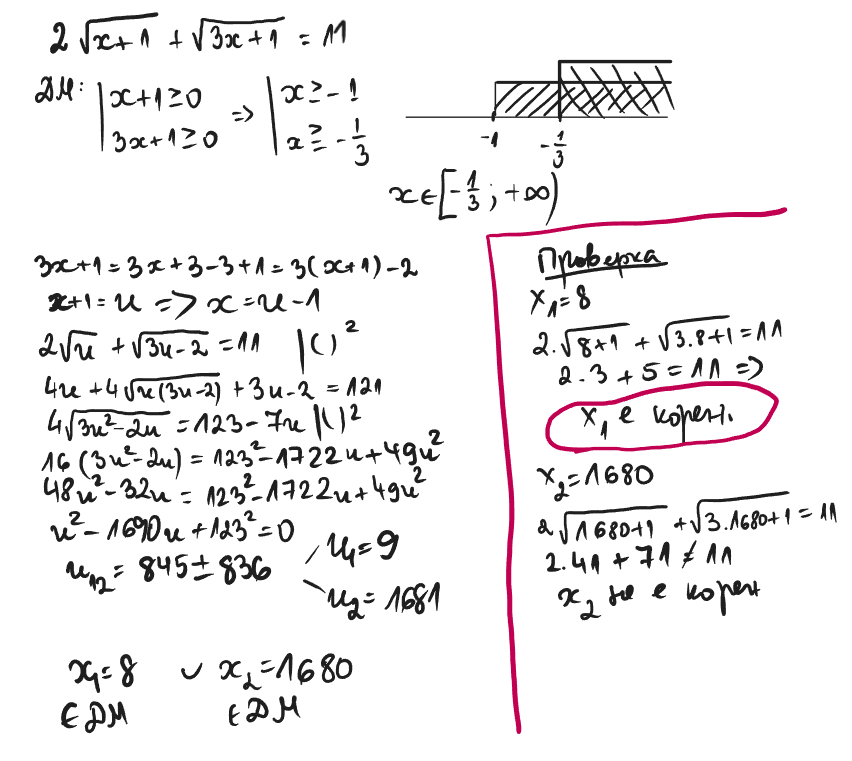 2√(x+1) + √(3x+1) = 11
ДМ: | x+1≥0 => | x≥-1
| 3x+1≥0 | x≥-1/3
-1 -1/3
x∈[-1/3; +∞)
3x+1=3x+3-3+1=3(x+1)-2
x+1=u => x=u-1
2√u + √(3u-2) = 11 |()²
4u+4√(u(3u-2)) + 3u-2 = 121
4√(3u²-2u) = 123-7u |()²
16(3u²-2u) = 123²-1722u+49u²
48u²-32u = 123²-1722u+49u²
u²-1690u+123²=0
u₁₂ = 845±836
u₁=9
u₂=1681
x₁=8 ∪ x₂=1680
∈ДМ ∈ДМ
Проверка
x₁=8
2.√(8+1) + √(3.8+1) = 11
2.3+5=11 =>
x₁ е корен.
x₂=1680
2√(1680+1) + √(3.1680+1) = 11
2.41+71≠11
x₂ не е корен